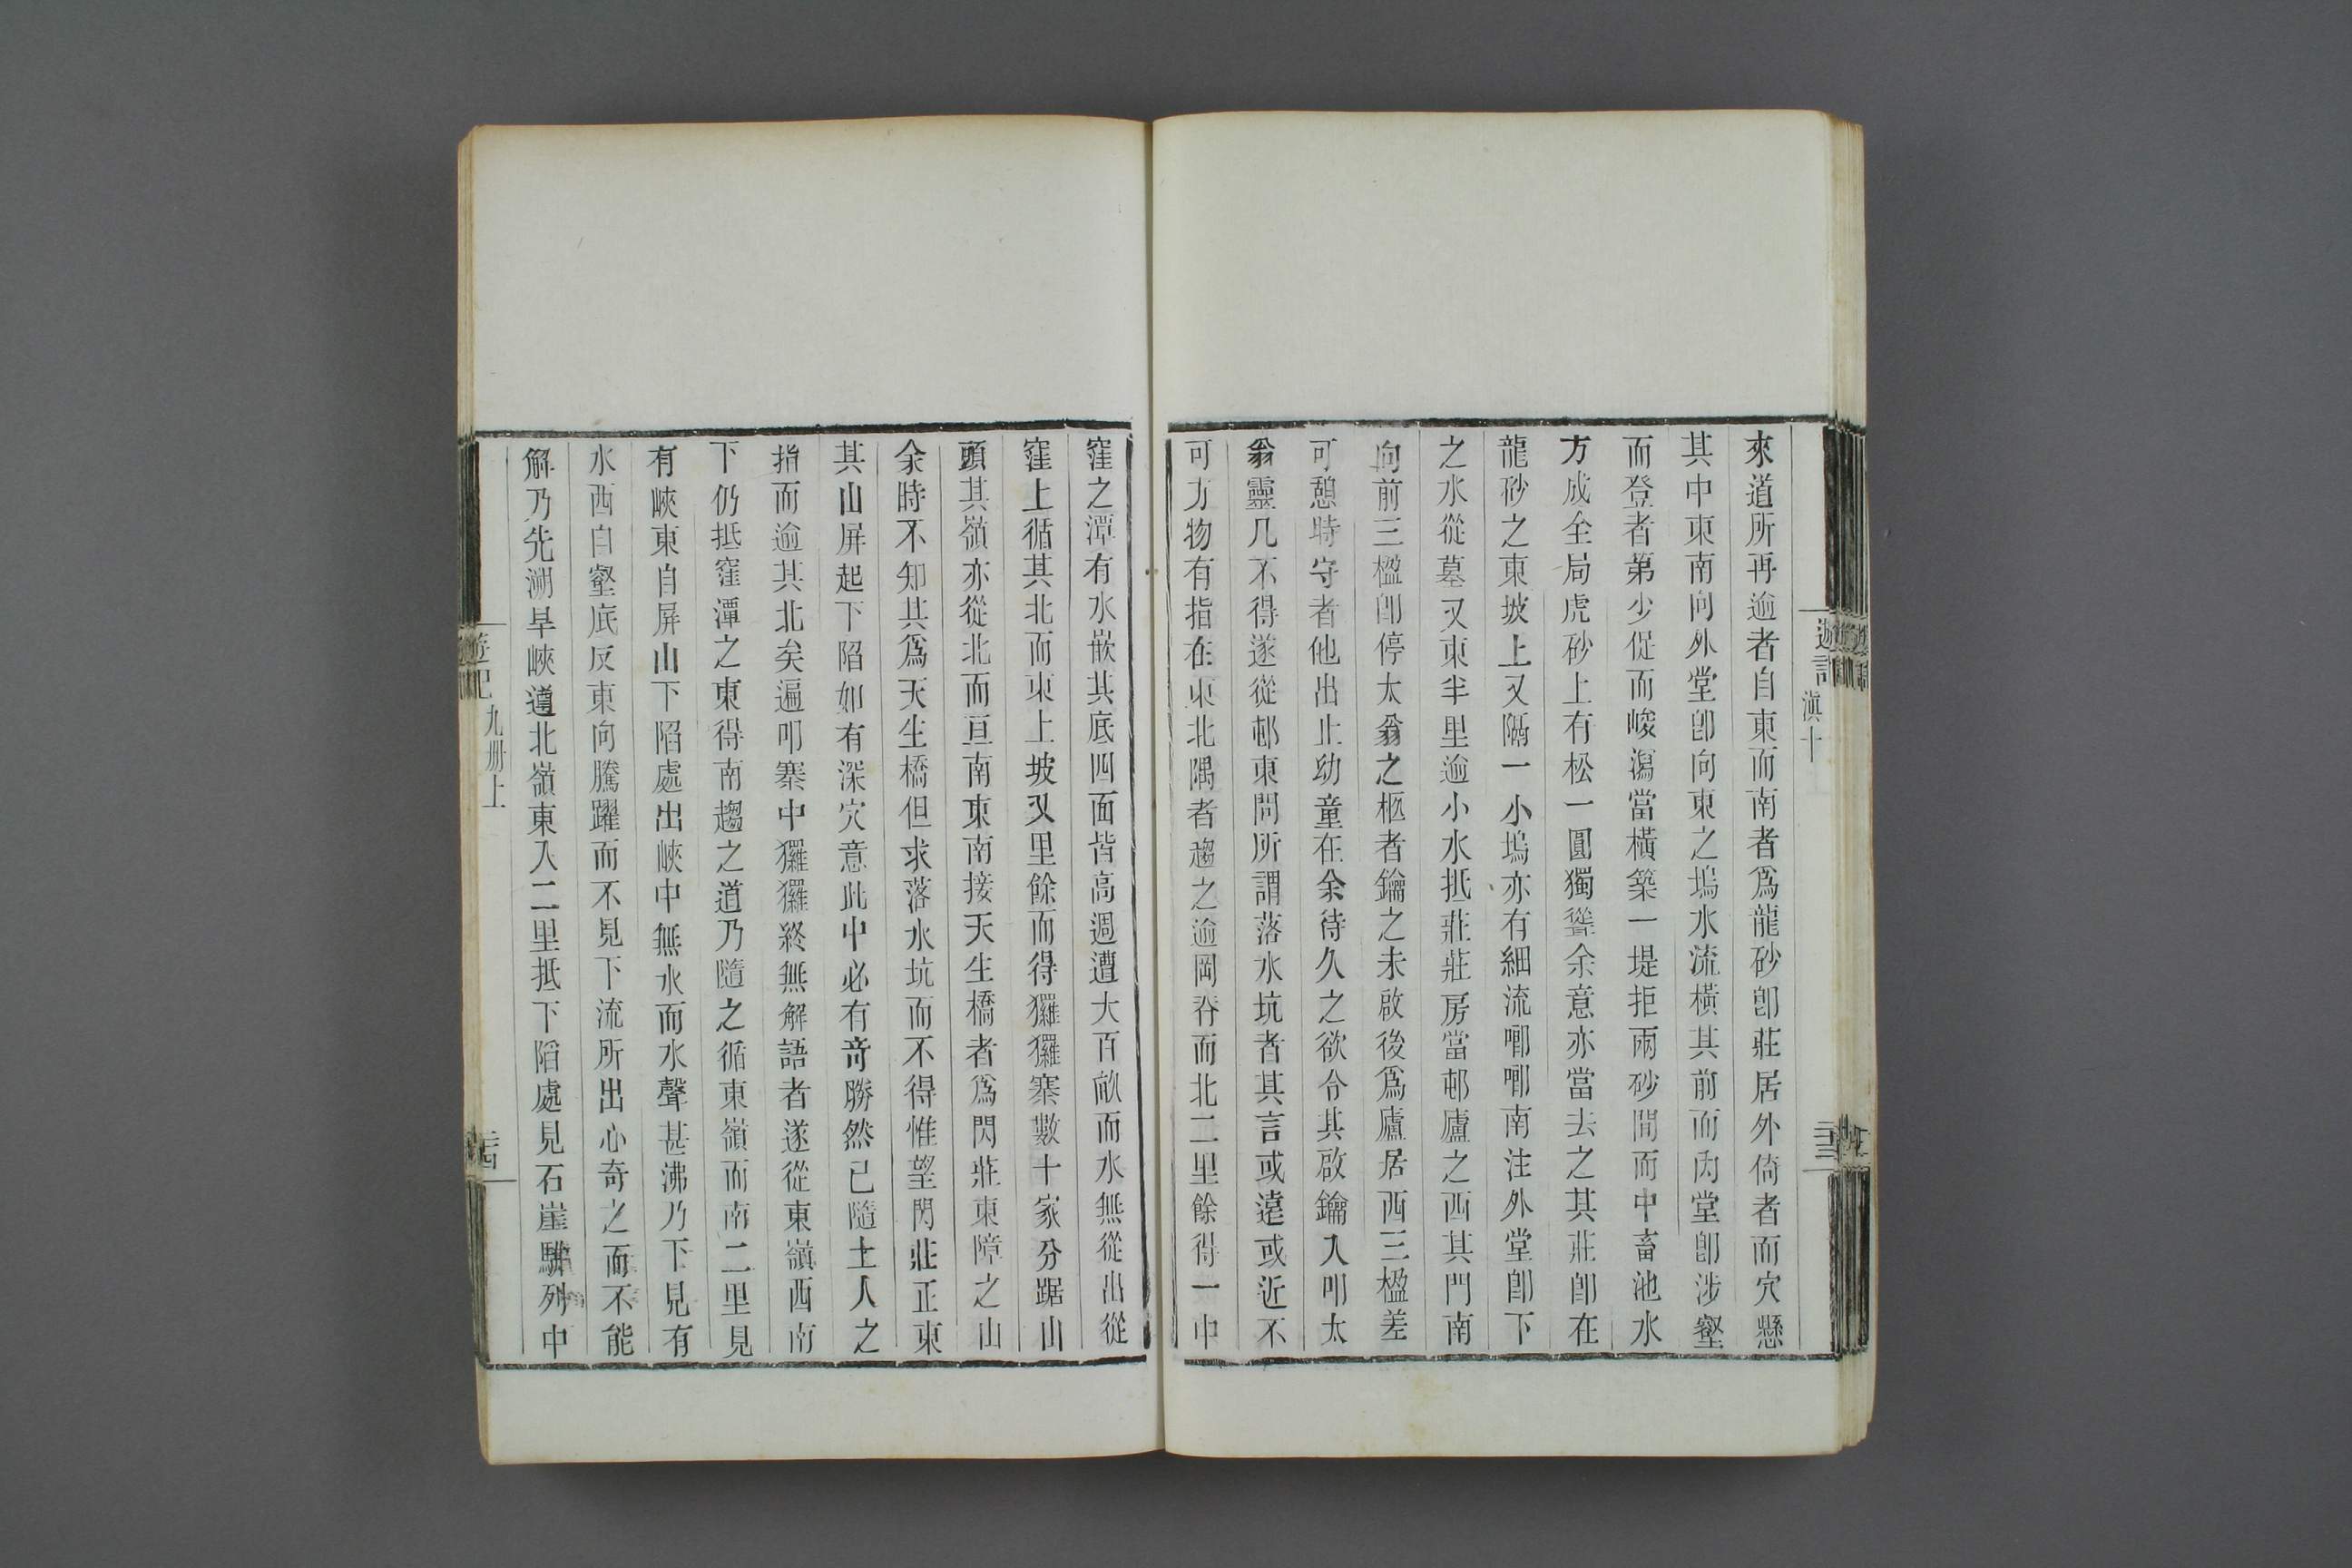 遊記 滇十 三十三
來道所再逾者自東而南者爲龍砂卽莊居外倚者而穴懸
其中東南向外堂卽向東之塢水流橫其前而內堂卽涉壑
而登者第少促而峻瀉當橫築一堤拒兩砂間而中畜池水
方成全局虎砂上有松一圓獨聳余意亦當去之其莊卽在
龍砂之東坡上又隔一小塢亦有細流唧唧南注外堂卽下
之水從墓又東半里逾小水抵莊莊房當邨廬之西其門南
向前三楹卽停太翁之柩者鑰之未啟後爲廬居西三楹差
可憩時守者他出止幼童在余待久之欲令其啟鑰入叩太
翁靈几不得遂從邨東問所謂落水坑者其言或遠或近不
可方物有指在東北隅者趨之逾岡脊而北二里餘得一中
窪之潭有水嵌其底四面皆高週遭大百畝而水無從出從
窪上循其北而東上坡又里餘而得玀玀寨數十家分踞山
頭其嶺亦從北而亘南東南接天生橋者爲閃莊東障之山
余時不知其爲天生橋但求落水坑而不得惟望閃莊正東
其山屏起下陷如有深穴意此中必有奇勝然已隨土人之
指而逾其北矣遍叩寨中玀玀終無解語者遂從東嶺西南
下仍抵窪潭之東得南趨之道乃隨之循東嶺而南二里見
有峽東自屏山下陷處出峽中無水而水聲甚沸乃下見有
水西自壑底反東向騰躍而不見下流所出心奇之而不能
解乃先溯旱峽遵北嶺東入二里抵下陷處見石崖騈列中
遊記 九册上 三十四